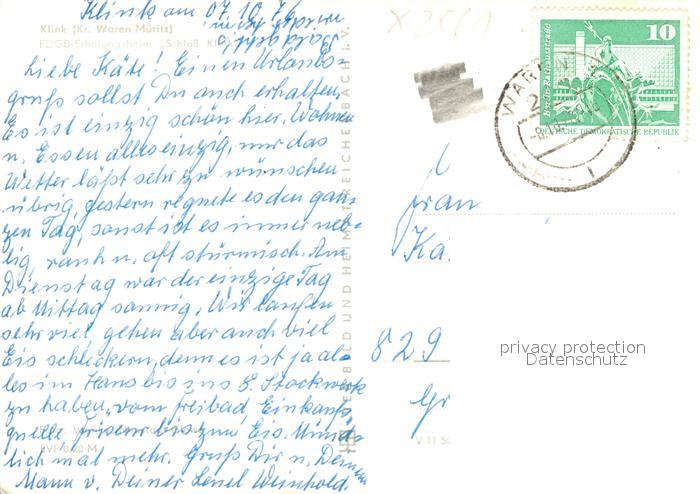 Klink am 07.10.76
Klink (Kr. Waren Müritz)
FDGB-Erholungsheim „Schloß
Liebe Käte! Einen Urlaubs-
gruß sollst Du auch erhalten.
Es ist einzig schön hier. Wohnen
u. Essen alles einzig, nur das
Wetter läßt sehr zu wünschen
übrig, gestern regnete es den gan-
zen Tag, sonst ist es immer neb-
lig, rauh u. oft stürmisch. Am
Dienstag war der einzige Tag
ab Mittag sonnig. Wir laufen
sehr viel, gehen aber auch viel
Eis schleckern, denn es ist ja al-
les im Haus bis ins 8. Stockwerk
zu haben, vom Freibad, Einkaufs-
quelle, Frisem bis zum Eis. Münd-
lich mal mehr. Gruß Dir u. Deinem
Mann v. Deiner Lenel Weinhold.
EVP 0,20 M
BILD UND HEIMAT REICHENBACH i. V.
V 11 50
10
Berlin, Rathausstraße
DEUTSCHE DEMOKRATISCHE REPUBLIK
WAREN
Frau
Ka
829
Gr
privacy protection
Datenschutz